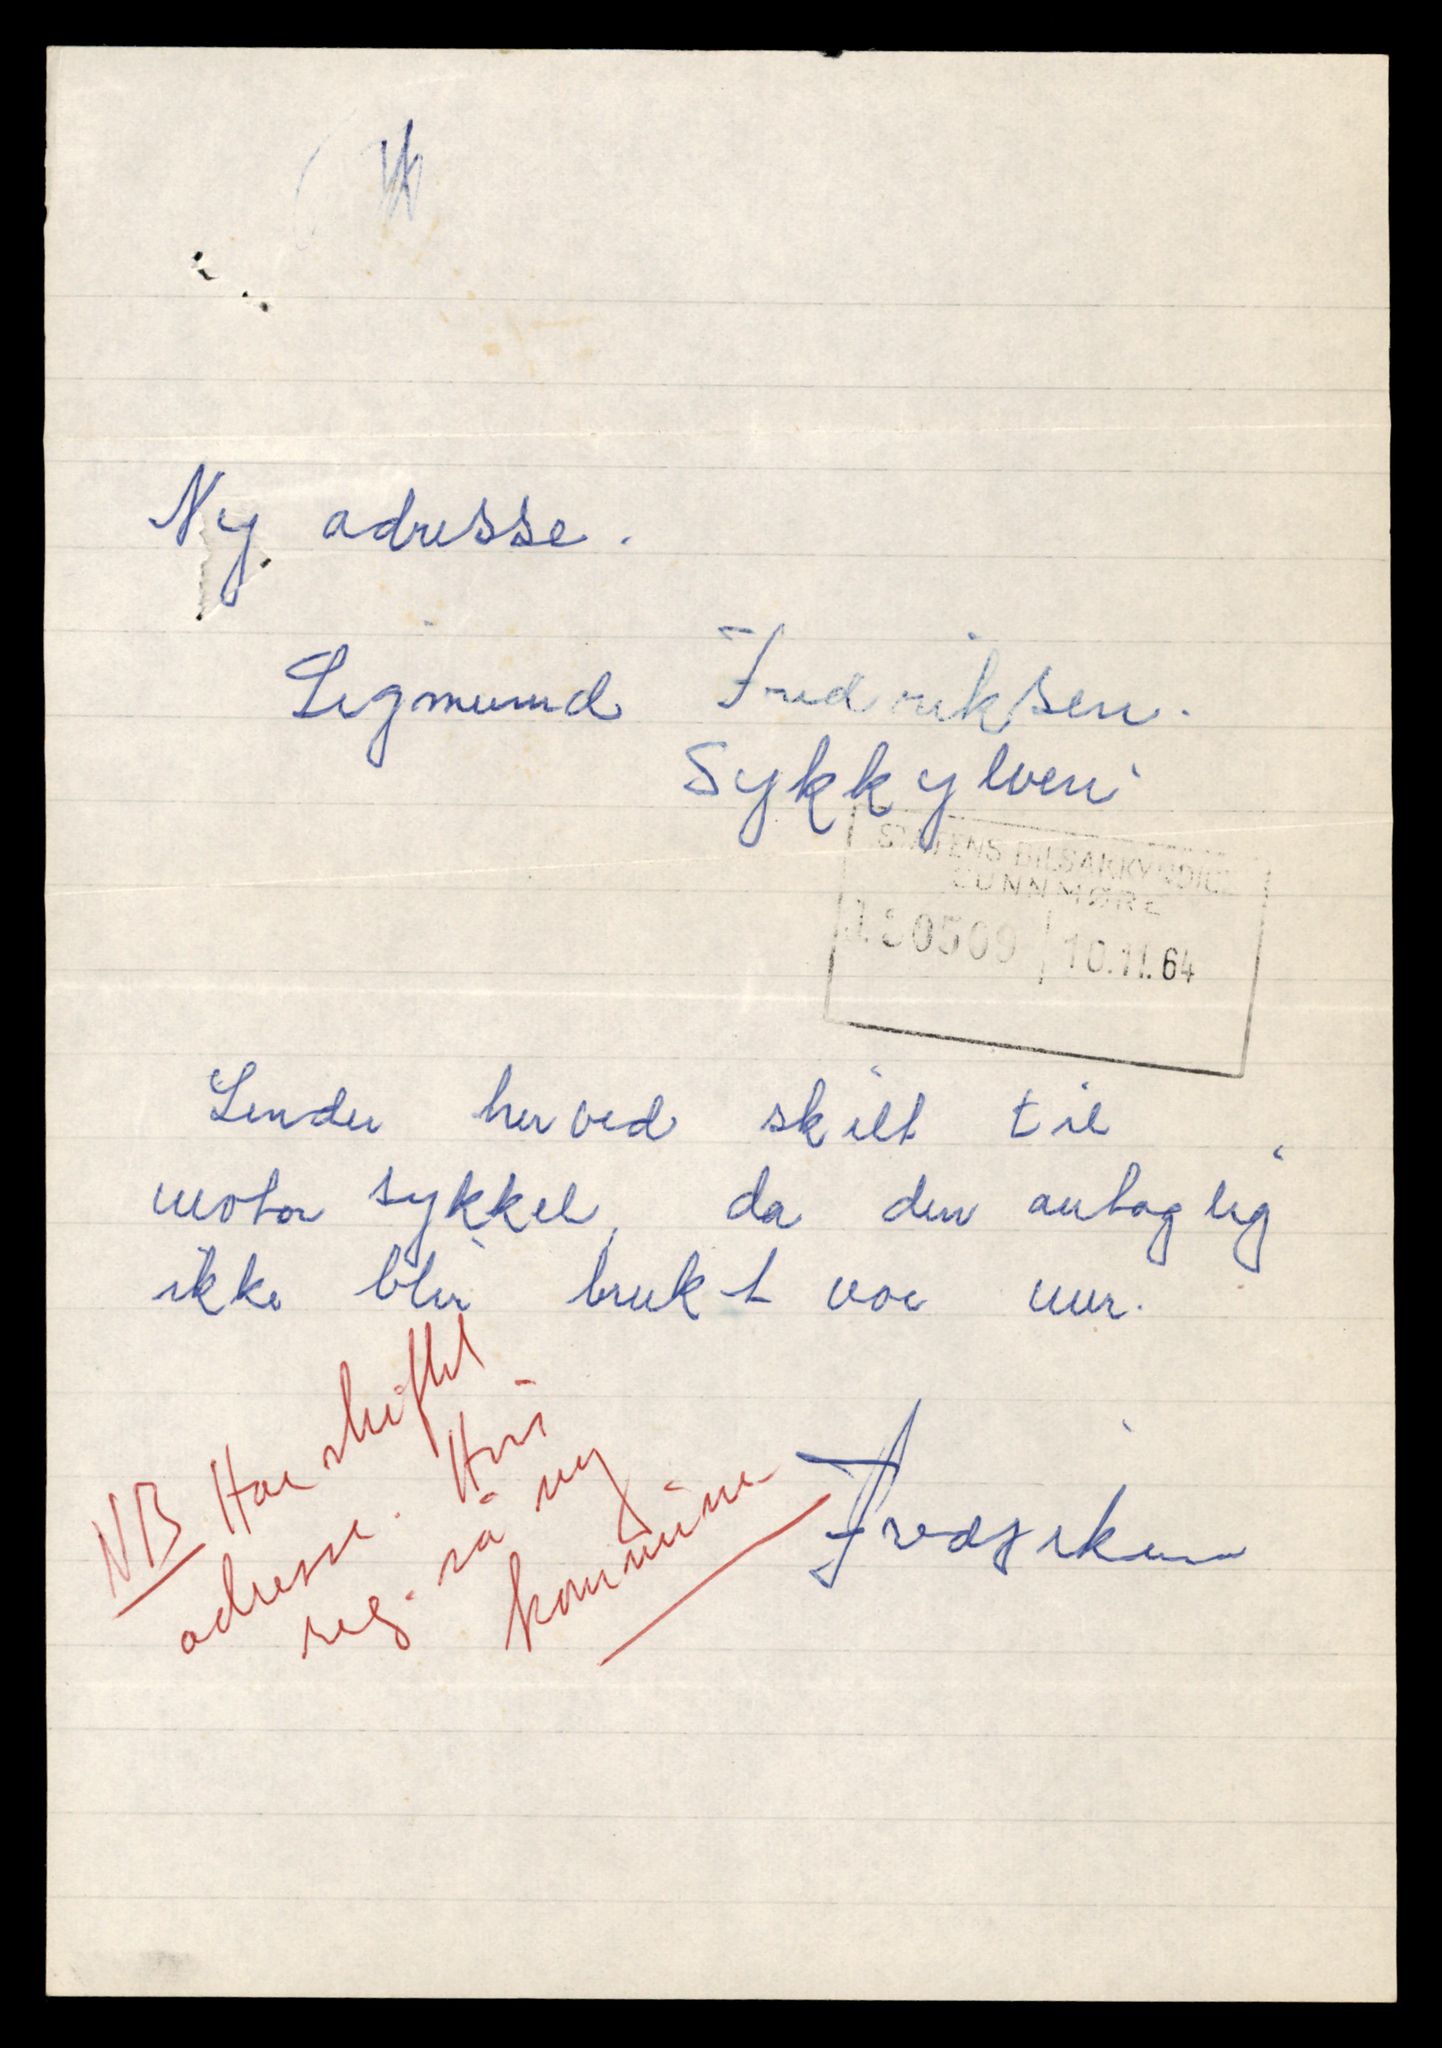 Ny adresse.
Sigmund Fredriksen.
Sykkylven
STATENS BILSAKKYNDIGE
SUNNMØRE
10.11.64
Sender herved skilt til
motor sykkel, da den antaglig
ikke blir brukt voe mer.
NB Har skiftet
adresse. Hvis
reg. så ny
kommune
Fredriksen